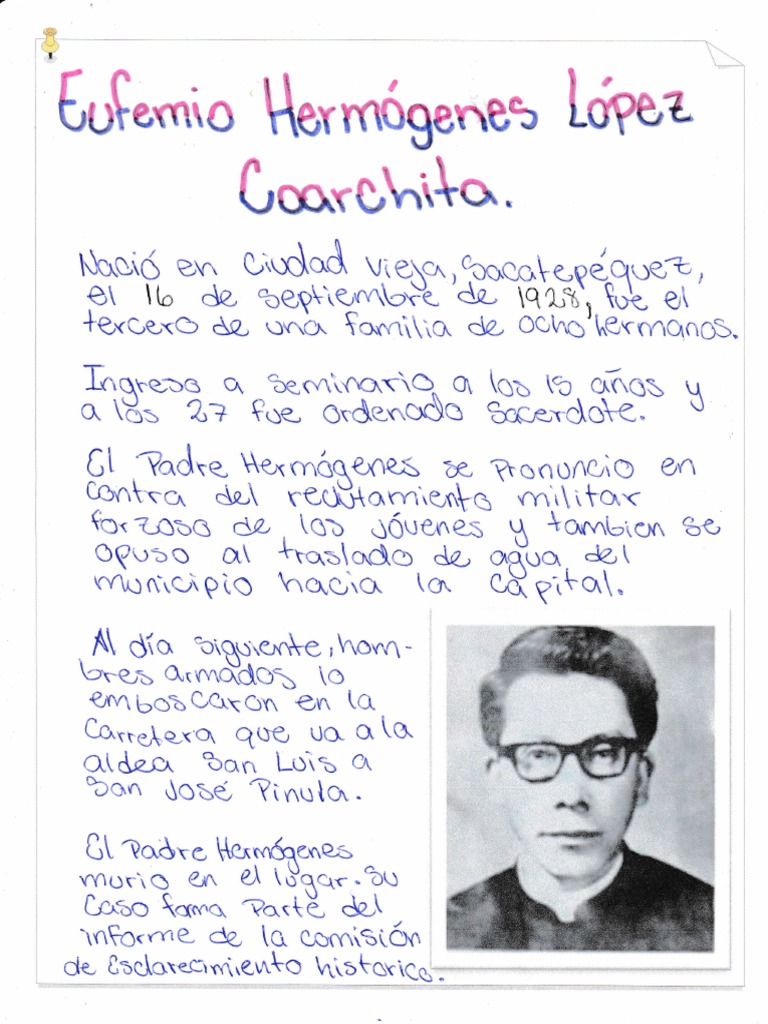 Eufemio Hermógenes López
Coarchita.
Nació en Ciudad Vieja, Sacatepéquez,
el 16 de septiembre de 1928, fue el
tercero de una familia de ocho hermanos.
Ingreso a seminario a los 15 años y
a los 27 fue ordenado Sacerdote.
El Padre Hermógenes se Pronuncio en
contra del reclutamiento militar
forzoso de los jóvenes y tambien se
opuso al traslado de agua del
municipio hacia la capital.
Al día siguiente, hom-
bres armados lo
emboscaron en la
Carretera que va a la
aldea San Luis a
San José Pinula.
El Padre Hermógenes
murio en el lugar. Su
Caso forma Parte del
informe de la comisión
de Esclarecimiento historico.